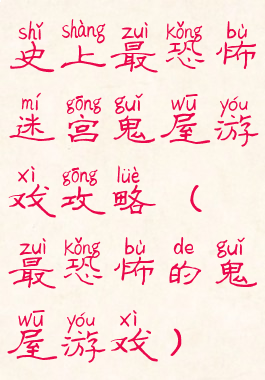 shǐ shàng zuì kǒng bù
史上最恐怖
mí gōng guǐ wū yóu
迷宫鬼屋游
xì gōng lüè
戏攻略（
zuì kǒng bù de guǐ
最恐怖的鬼
wū yóu xì
屋游戏）